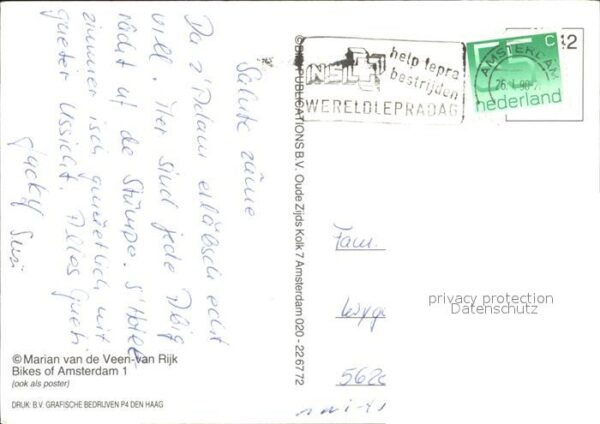 Salute zäme
Da z'Adam erläbsch echt
viel. Mer sind jede Abig
rächt uf de Stümpe. S'Hotel-
zimmer isch gmüetlich mit
gueter Ussicht. Alles Gueti
Lucky Susi
© Marian van de Veen-van Rijk
Bikes of Amsterdam 1
(ook als poster)
DRUK: B.V. GRAFISCHE BEDRIJVEN P4 DEN HAAG
PUBLICATIONS B.V. Oude Zijds Kolk 7 Amsterdam 020 - 226772
NSL
help lepra
bestrijden
WERELDLEPRADAG
AMSTERDAM
C
nederland
Fam.
562
privacy protection
Datenschutz